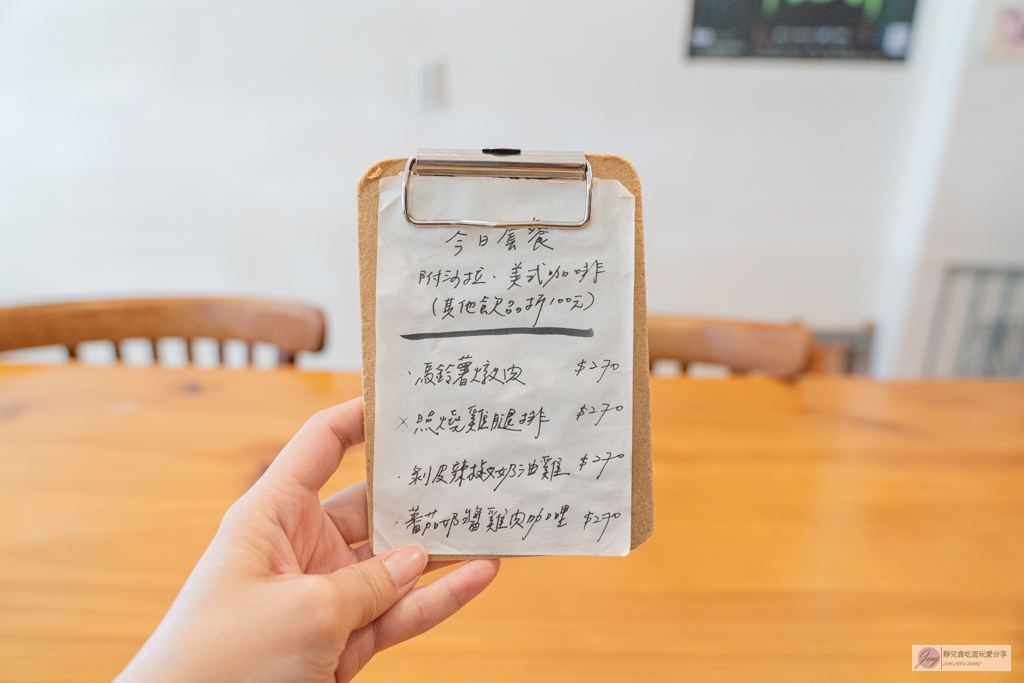 今日套餐
附沙拉、美式咖啡
(其他飲品折100元)
·馬鈴薯燉肉 $270
×照燒雞腿排 $270
·剝皮辣椒奶油雞 $270
·蕃茄奶醬雞肉咖哩 $270
Jung 靜兒貪吃遊玩愛分享